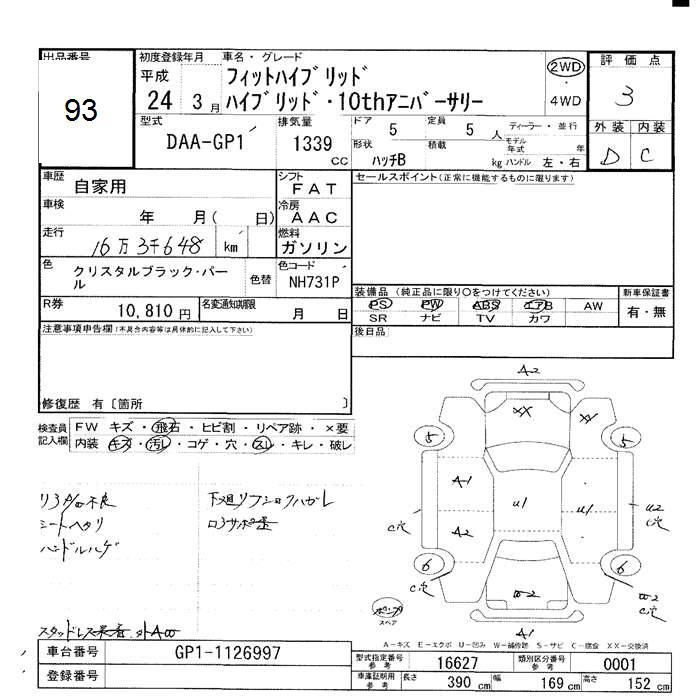 出品番号
93
初度登録年月
平成
24 3月
車名・グレード
フィットハイブリッド
ハイブリッド・10thアニバーサリー
2WD
・
4WD
評価点
3
外装 内装
D C
型式
DAA-GP1
排気量
1339
CC
ドア 5
定員 5 人
形状 ハッチB
積載 kg
ディーラー・並行
モデル年式 年
ハンドル 左・右
車歴
自家用
車検
年 月( 日)
走行
16万3千648 km
色
クリスタルブラック・パール
色替
シフト
FAT
冷房
AAC
燃料
ガソリン
色コード
NH731P
R券
10,810円
名変通知期限
月 日
セールスポイント(正常に機能するものに限ります)
装備品 (純正品に限り○をつけてください)
PS PW ABS エアB AW
SR ナビ TV カワ
新車保証書
有・無
後日品
注意事項申告欄(不具合内容等は具体的に記入して下さい)
修復歴 有〔箇所 〕
検査員
記入欄
FW キズ・飛石・ヒビ割・リペア跡・×要
内装 キズ・汚レ・コゲ・穴・スレ・キレ・破レ
シートヘタリ
ハンドルハゲ
A2
XX
XX
5
5
A1
U1
U1
U2
C穴
C穴
A2
6
6
C穴
W2
W2
C穴
スペア
A1
A-キズ E-エクボ U-凹み W-補修跡 S-サビ C-腐食 XX-交換済
車台番号
GP1-1126997
登録番号
型式指定番号
参考
16627
類別区分番号
参考
0001
車庫証明用
参考
長さ 390 cm
幅 169 cm
高さ 152 cm